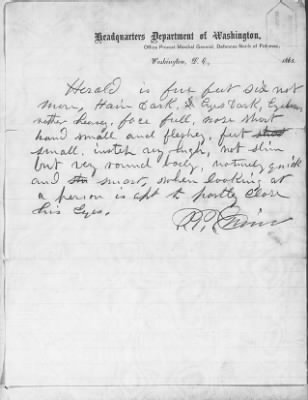 Headquarters Department of Washington,
Office Provost Marshal General, Defences North of Potomac,
Washington, D. C., 186
Herald is five feet six not
more, Hair dark, Eyes dark, Eyebrows
rather heavy, face full, nose short
hand small and fleshy, feet
small, instep very high, not slim
but very round body, naturely quick
and smart, when looking at
a person is apt to partly close
his Eyes.